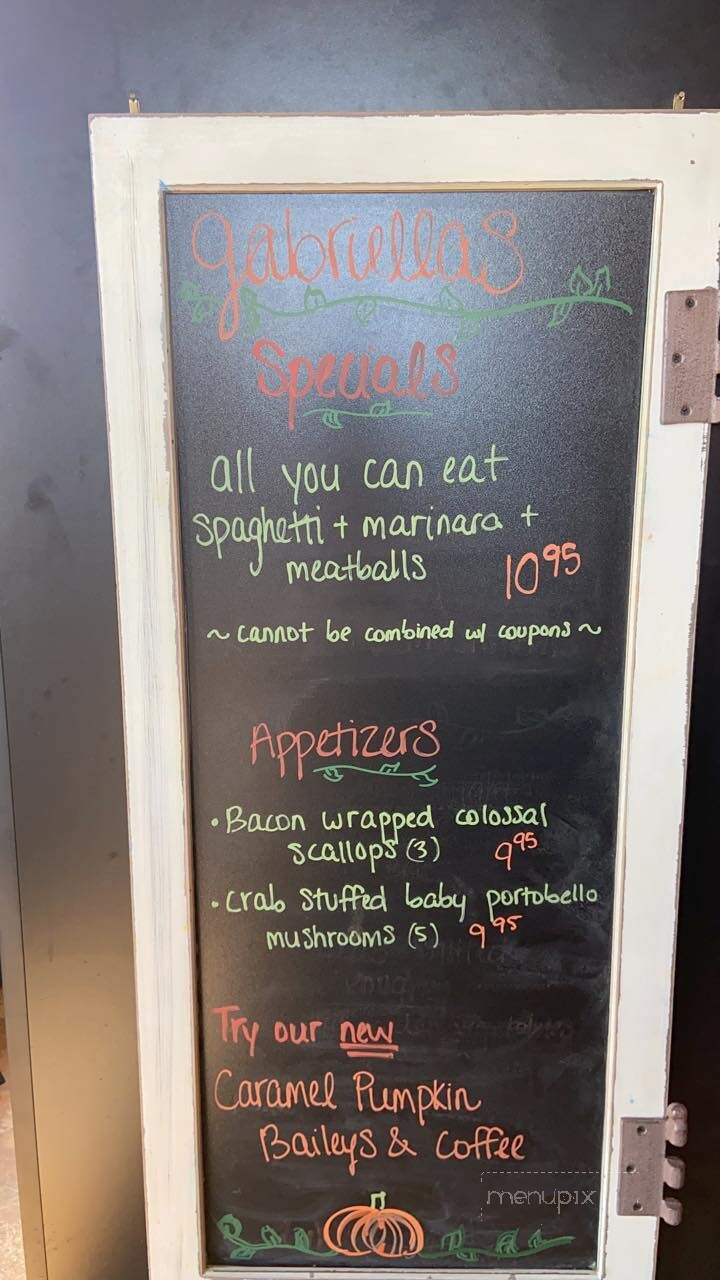 Gabriellas
Specials
all you can eat
spaghetti + marinara +
meatballs 10 95
~ cannot be combined w/ coupons ~
Appetizers
• Bacon wrapped colossal
scallops (3) 9 95
• Crab stuffed baby portobello
mushrooms (5) 9 95
Try our new
Caramel Pumpkin
Baileys & Coffee
menupix